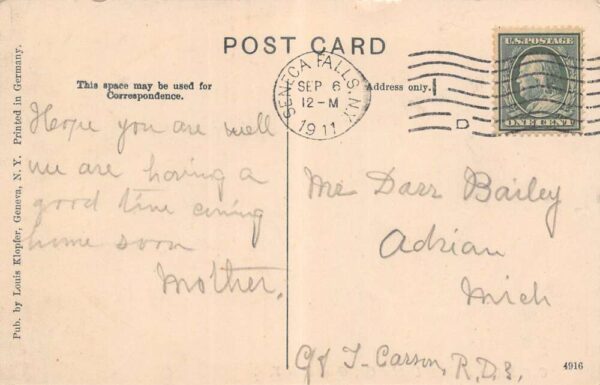 POST CARD
This space may be used for
Correspondence.
Address only.
SENECA FALLS, N.Y.
SEP 6
12-M
1911
D
U.S. POSTAGE
ONE CENT
Hope you are well
we are having a
good time coming
home soon
Mother.
Mr Darr Bailey
Adrian
Mich
T- Carson, R.D.
Pub. by Louis Klopfer, Geneva, N. Y. Printed in Germany.
4916